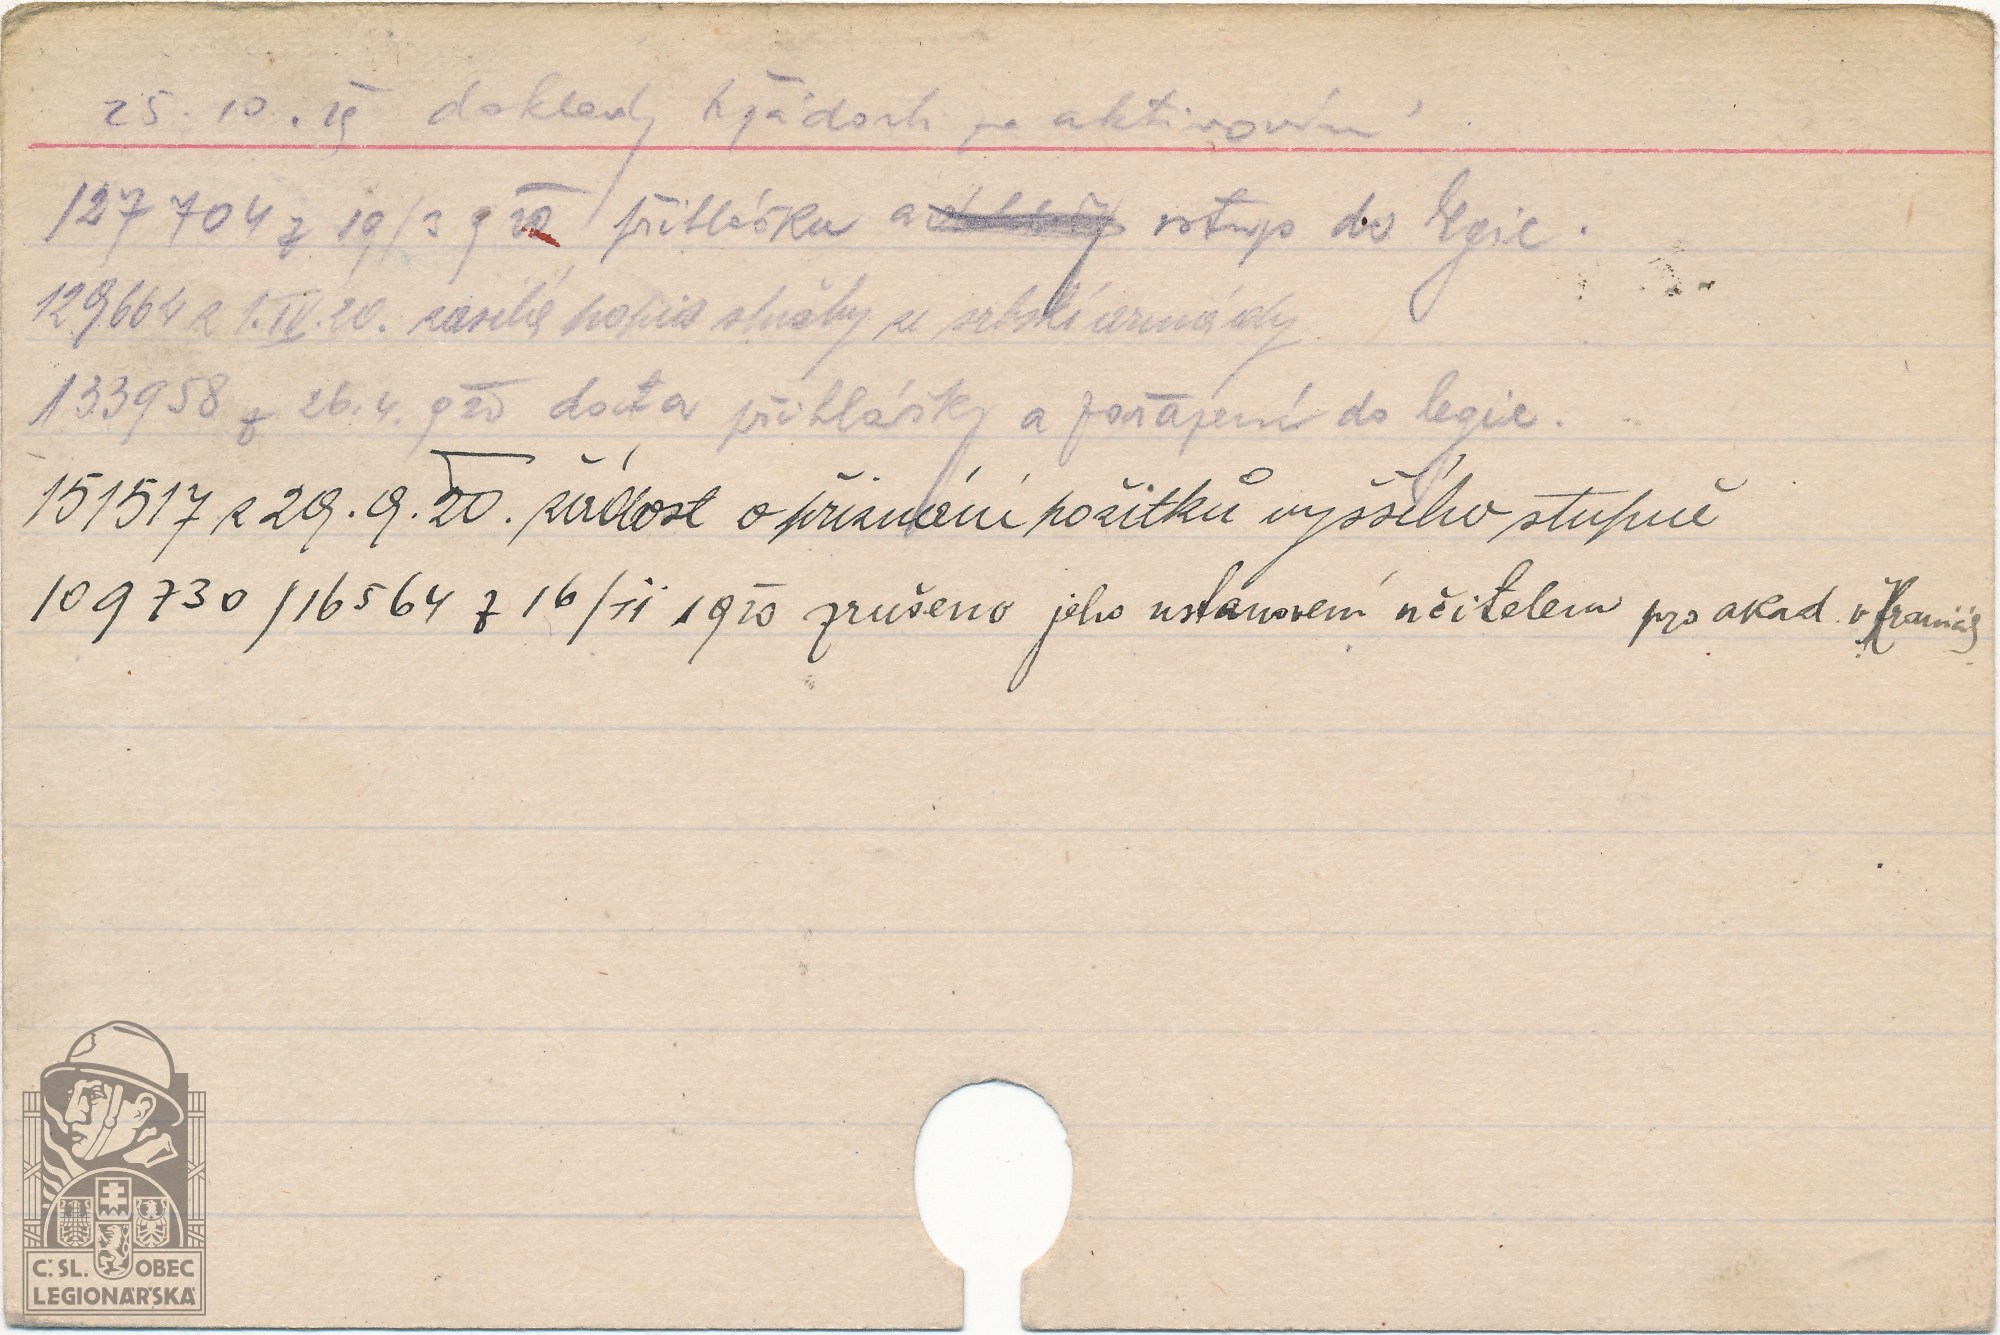 25. 10. 19 doklady k žádosti na aktivování
127704 z 19/3 920 přihlášku a vstup do legie.
129664 z 1.IV.20. zasílá popis služby ze srbské armády
133958 z 26.4. 920 přihlášky a zařazení do legie.
151517 z 29.9.20. žádost o přiznání požitků vyššího stupně
109730/16564 z 16/11 1920 zrušeno jeho ustanovení učitelem pro akad. v Hranicích
Č.SL. OBEC
LEGIONÁŘSKÁ